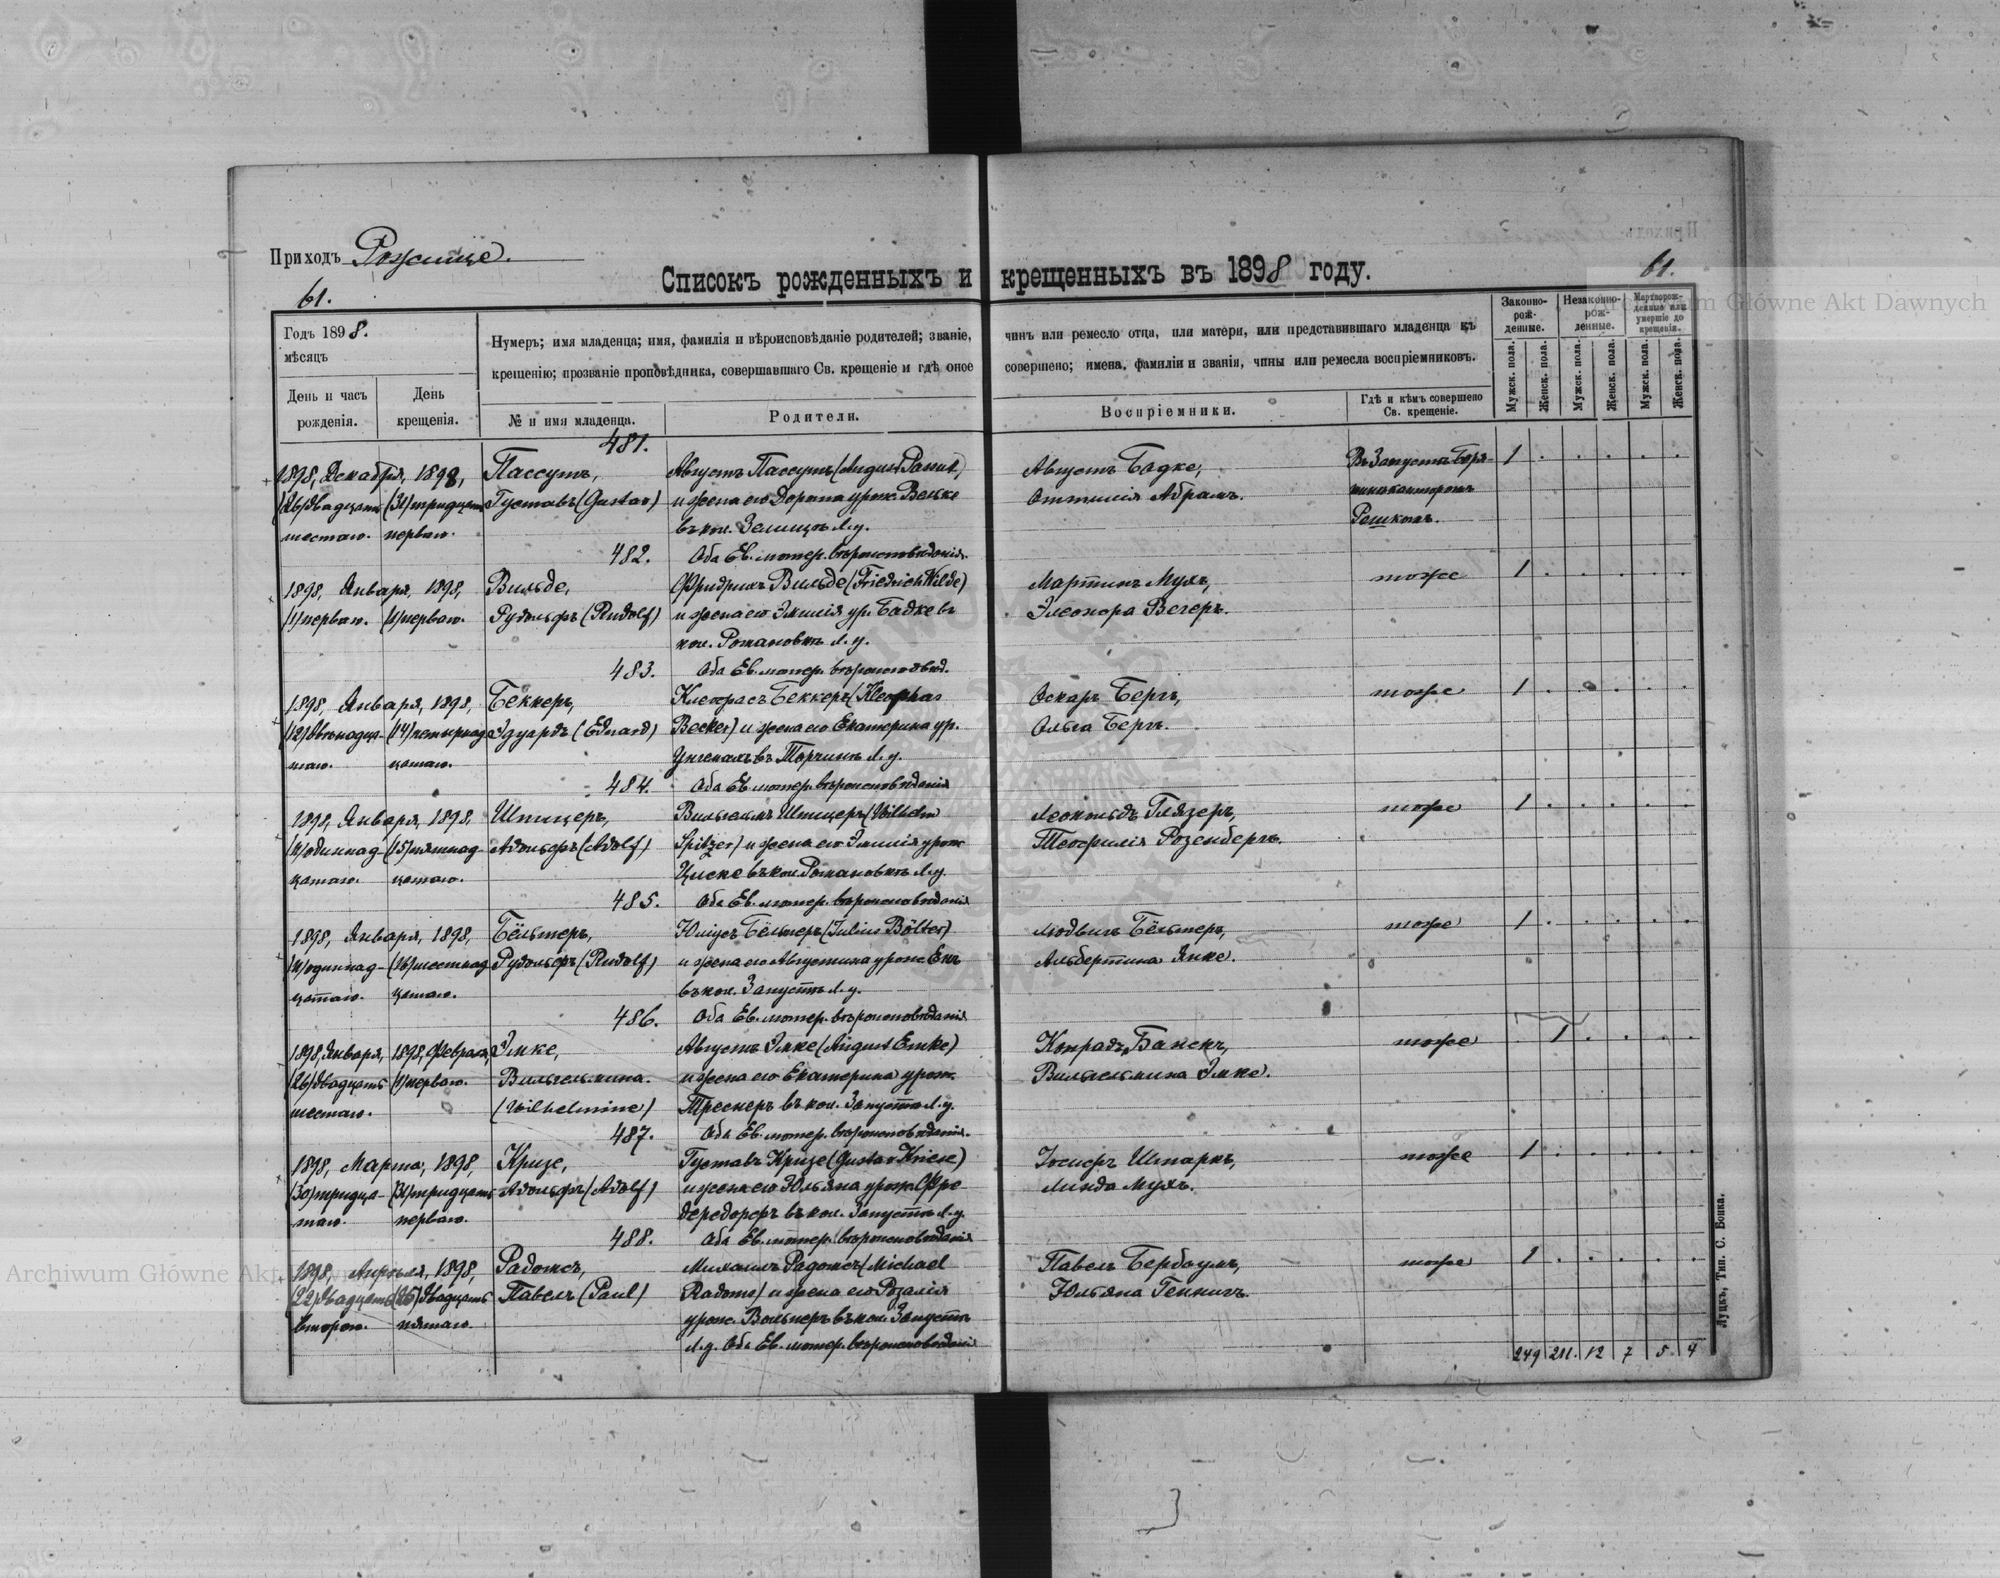 Приходъ Рожище.
Приходъ
61.
61.
Списокъ рожденныхъ и крещенныхъ въ 1898 году.
Archiwum Główne Akt Dawnych
Годъ 1898.
мѣсяцъ
День и часъ рожденія.
День крещенія.
Нумеръ; имя младенца; имя, фамилія и вѣроисповѣданіе родителей; званіе, чинъ или ремесло отца, или матери, или представившаго младенца къ
крещенію; прозваніе проповѣдника, совершавшаго Св. крещеніе и гдѣ оное совершено; имена, фамиліи и званія, чины или ремесла воспріемниковъ.
№ и имя младенца.
Родители.
Воспріемники.
Гдѣ и кѣмъ совершено Св. крещеніе.
Законно-рож-денные.
Незаконно-рож-денные.
Мертворож-денные или умершіе до крещенія.
Мужск. пола.
Женск. пола.
Мужск. пола.
Женск. пола.
Мужск. пола.
Женск. пола.
481.
1898, Декабря, 1898, Пассутъ, Августъ Пассутъ (August Passut) Августъ Бадке, Въ Запустѣ 1
(26) двадцать (31) тридцать Густавъ (Gustav) и жена его Дорота урож. Велке Оттилія Абрамъ.
шестаго. перваго. въ кол. Зелищѣ Л. у.
482. Оба Ев. лютер. вѣроисповѣданія.
1898, Января, 1898, Вильде, Фридрихъ Вильде (Friedrich Wilde) Мартинъ Мухъ, тоже 1
(1) перваго. (1) перваго. Рудольфъ (Rudolf) и жена его Эмилія ур. Бадке въ Элеонора Вегеръ.
кол. Рожановкѣ Л. у.
483. Оба Ев. лютер. вѣроисповѣд.
1898, Января, 1898, Беккеръ, Клеофасъ Беккеръ (Kleophas Оскаръ Бергъ, тоже 1
(12) двѣнадца- (14) четырнад Эдуардъ (Eduard) Becker) и жена его Екатерина ур. Ольга Бергъ.
таго. цатаго. въ Торчинѣ Л. у.
484. Оба Ев. лютер. вѣроисповѣданія
1898, Января, 1898, Шпицеръ, Вильгельмъ Шпицеръ (Wilhelm Леопольдъ Глязеръ, тоже 1
(11) одиннад- (15) пятнад- Адольфъ (Adolf) Spitzer) и жена его Эмилія урож. Теофилія Розенбергъ.
цатаго. цатаго. Циске въ кол. Рожановкѣ Л. у.
485. Оба Ев. лютер. вѣроисповѣданія
1898, Января, 1898, Бёльтеръ, Юліусъ Бёльтеръ (Julius Bölter) Людвигъ Бёльтеръ, тоже 1
(11) одиннад- (16) шестнад Рудольфъ (Rudolf) и жена его Августина урож. Альбертина Янке.
цатаго. цатаго. въ кол. Запустѣ Л. у.
486. Оба Ев. лютер. вѣроисповѣданія
1898, Января, 1898, Февраля, Эмке, Августъ Эмке (August Emke) Конрадъ тоже 1
(26) двадцать (1) перваго. Вильгельмина. и жена его Екатерина урож. Вильгельмина Эмке.
шестаго. (Wilhelmine) Треснеръ въ кол. Запустѣ Л. у.
487. Оба Ев. лютер. вѣроисповѣданія.
1898, Марта, 1898, Кризе, Густавъ Кризе (Gustav Kriese) Іосифъ Штаркъ, тоже 1
(30) тридца- (31) тридцать Адольфъ (Adolf) и жена его Юльяна урож. Фре Линда Мухъ.
таго. перваго. дередорфъ въ кол. Запустѣ Л. у.
488. Оба Ев. лютер. вѣроисповѣданія
1898, Апреля, 1898, Радомсъ, Михаилъ Радомсъ (Michael Павелъ Бербаумъ, тоже 1
(22) двадцать (25) двадцать Павелъ (Paul) Radoms) и жена его Розалія Юльяна Геннигъ.
второго. пятаго. урож. Вольперъ въ кол. Запустѣ
Л. у. Оба Ев. лютер. вѣроисповѣданія
249 211. 12 7 5. 4
Луцкъ, Тип. С. Бонка.
Archiwum Główne Akt